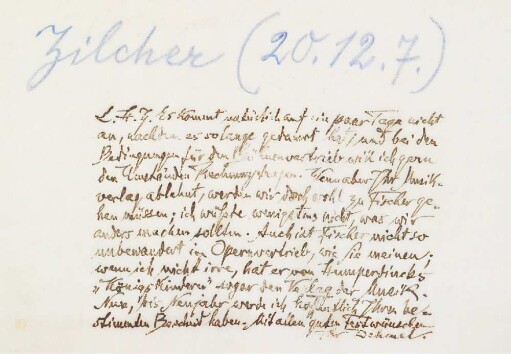 Zilcher (20.12.7.)
L. H. Z. Es kommt natürlich auf ein paar Tage nicht
an, nachdem es solange gedauert hat; und bei den
Bedingungen für den Bühnenvertrieb will ich gern
den Umständen Rechnung tragen. Wenn aber Ihr Musik-
verlag ablehnt, werden wir doch wohl zu Fischer ge-
hen müssen; ich wüßte wenigstens nicht, was wir
anders machen sollten. Auch ist Fischer nicht so
unbewandert im Opernvertrieb, wie Sie meinen;
wenn ich nicht irre, hat er von Humperdincks
"Königskindern" sogar den Verlag der Musik.
Nun, bis Neujahr werde ich hoffentlich Ihren be-
stimmenden Bescheid haben. Mit allen guten Festwünschen
Dehmel.